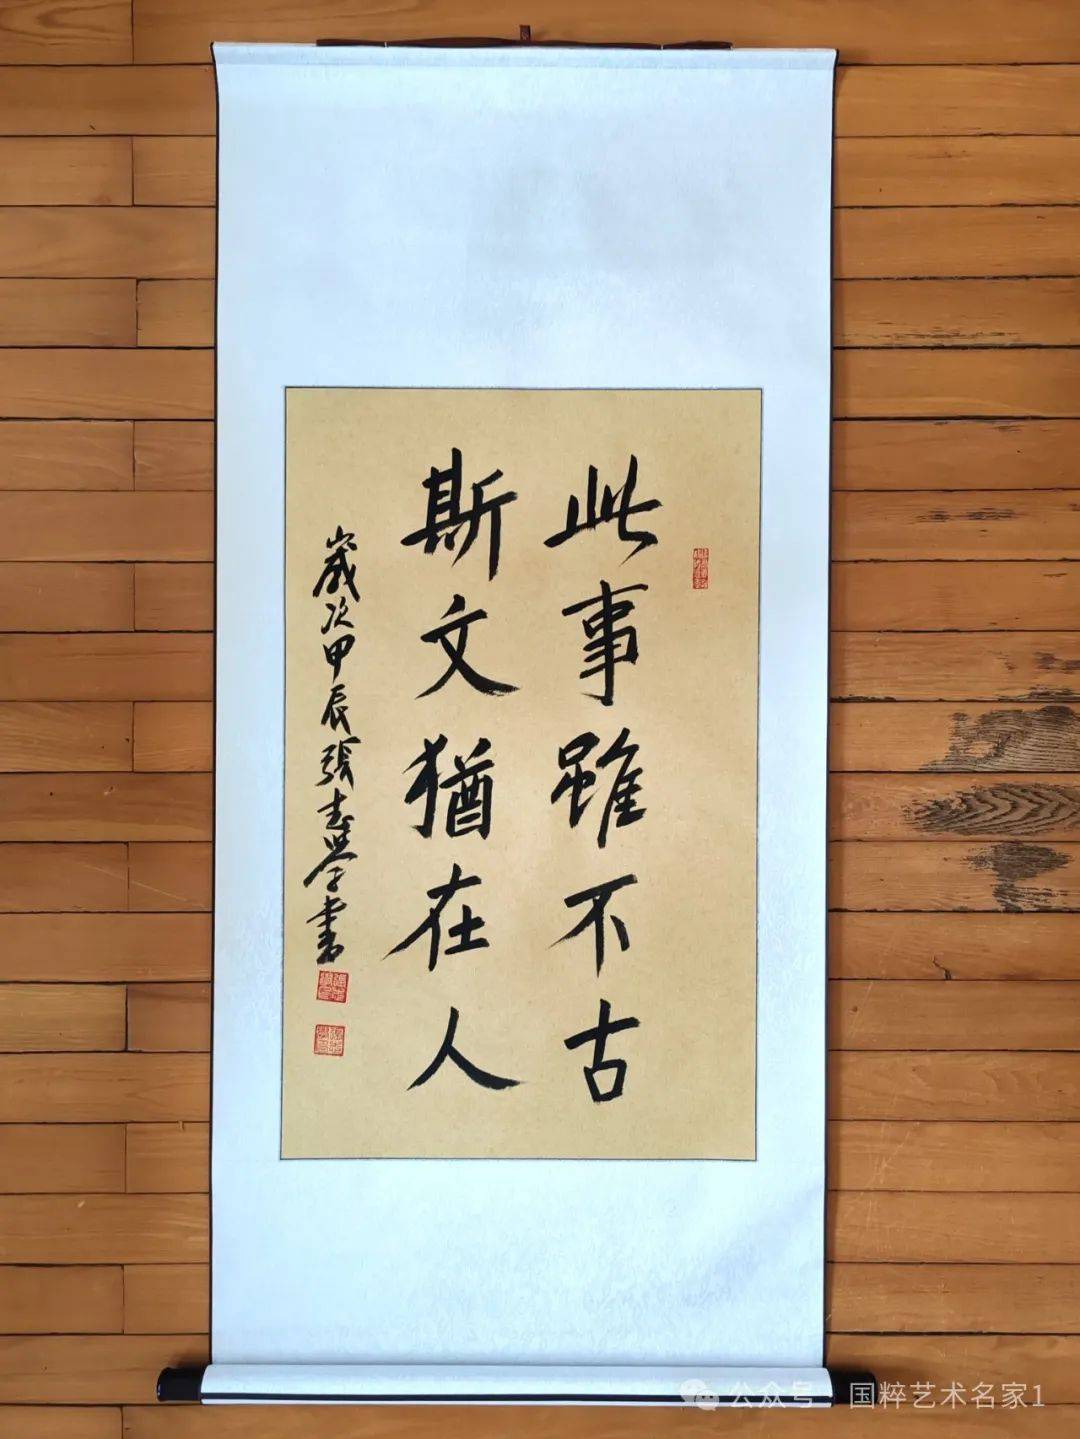 此事雖不古
斯文猶在人
歲次甲辰張志学書
公众号 · 国粹艺术名家1